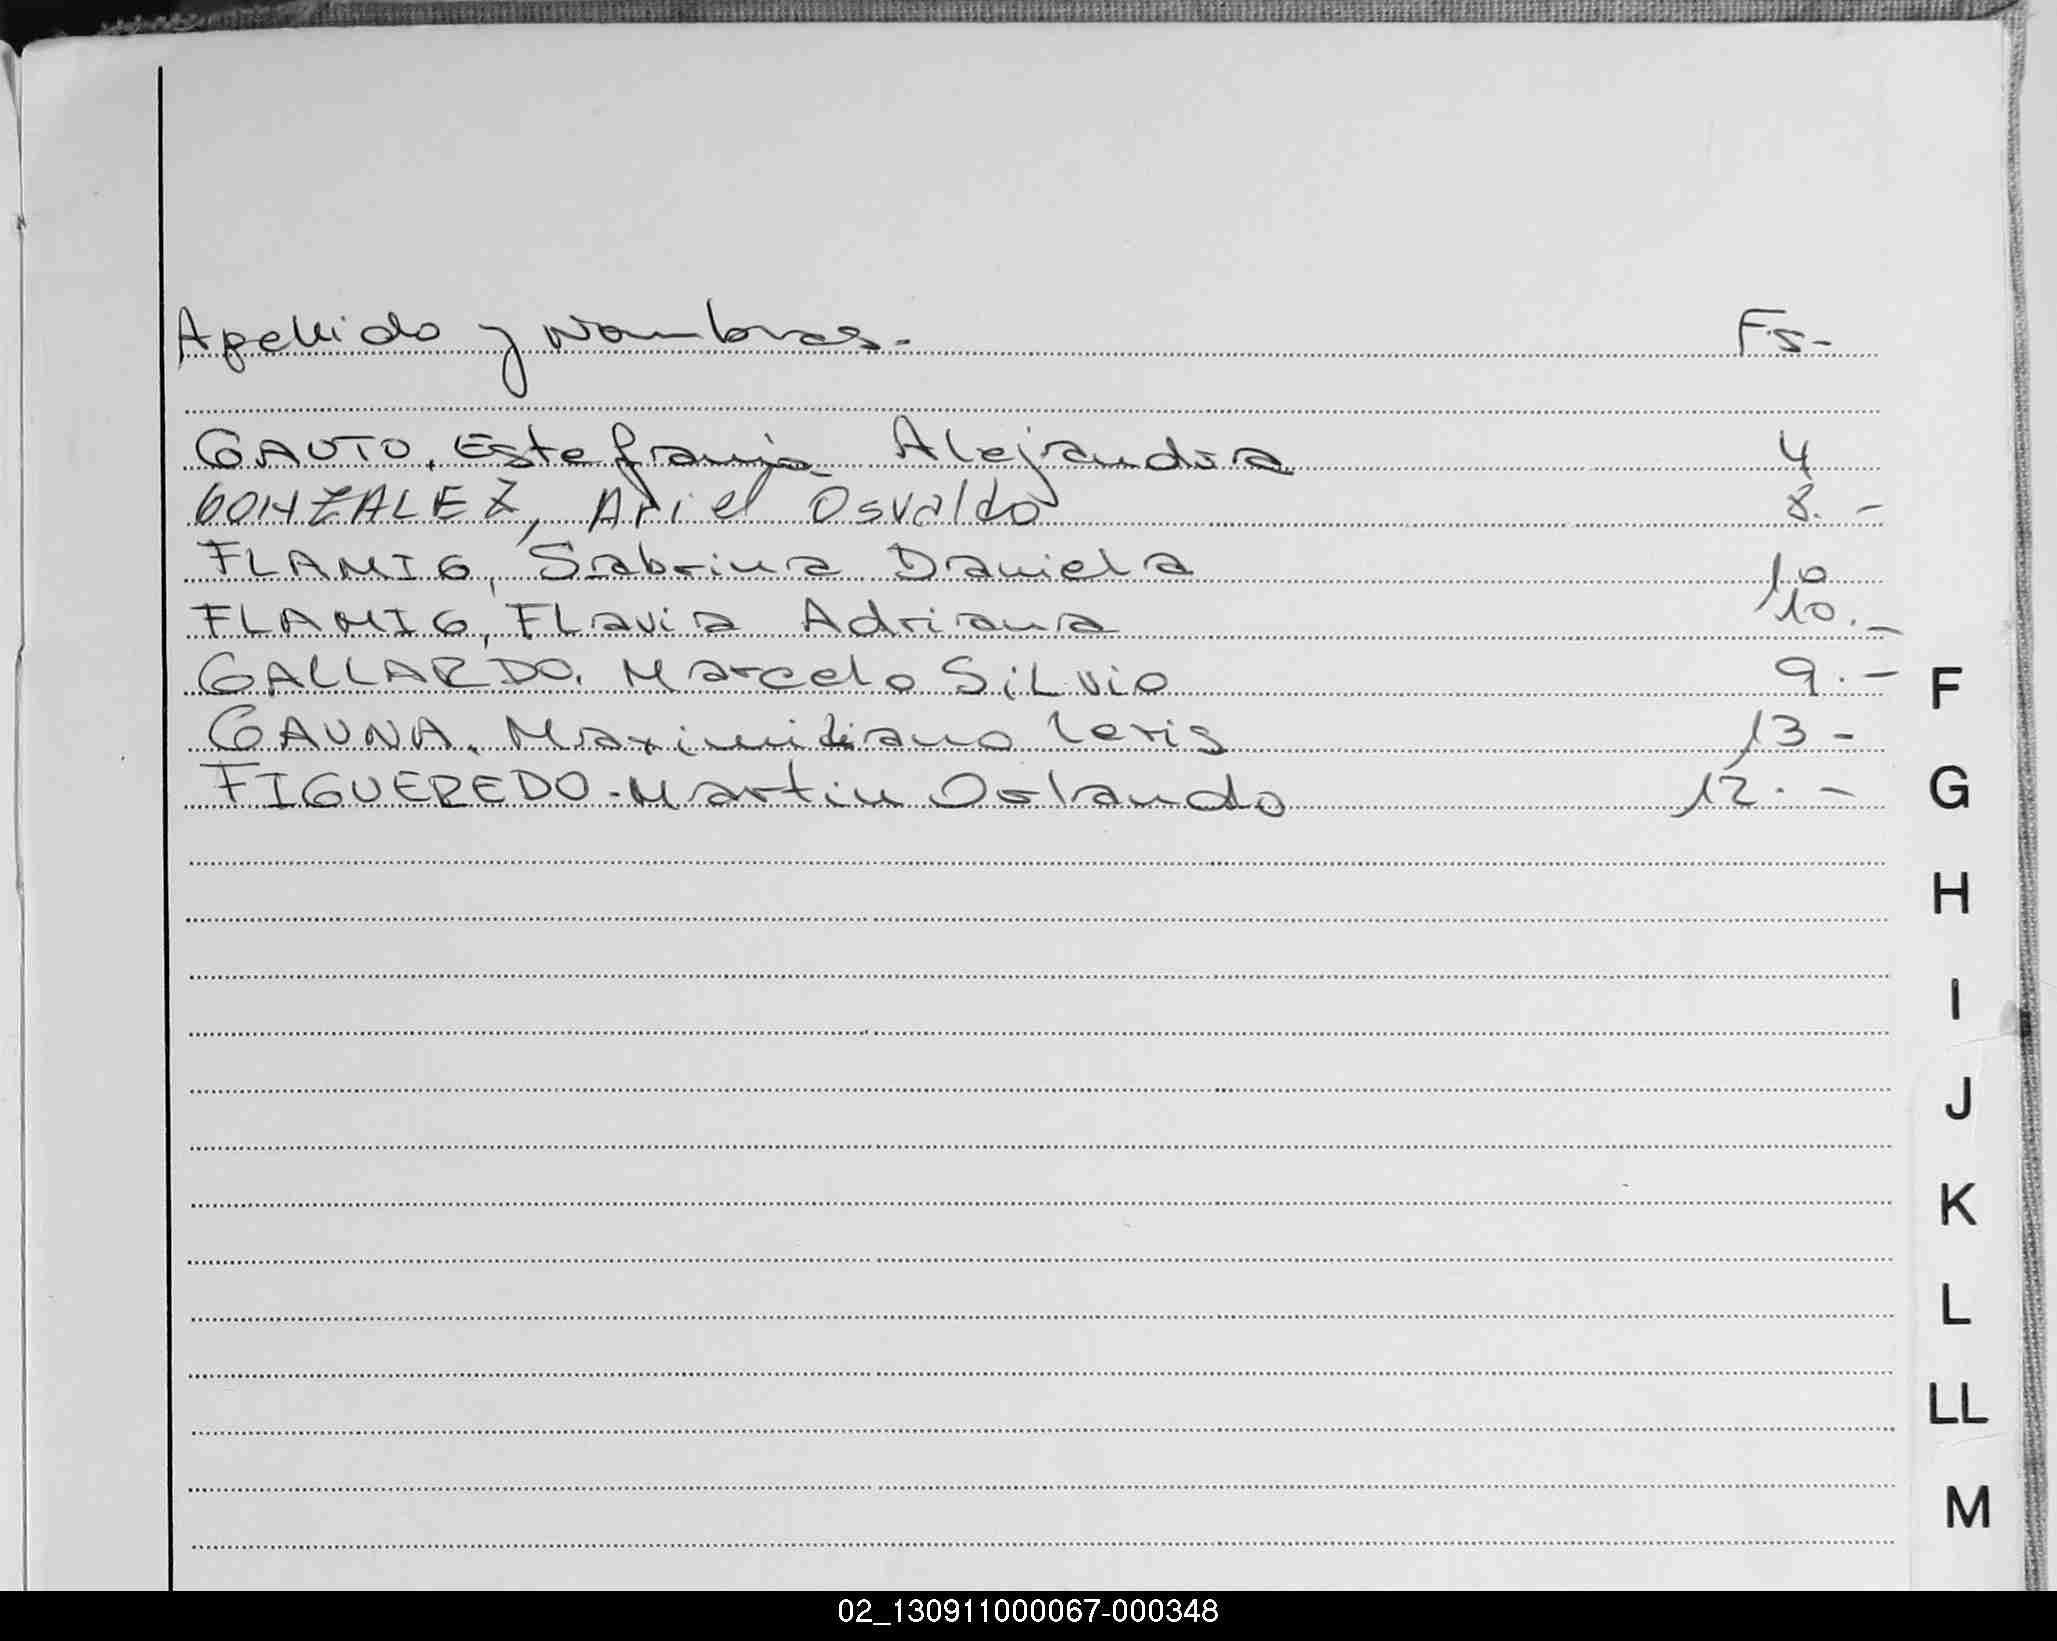 Apellido y Nombres. Fs-
GAUTO, Estefania Alejandra 4
GONZALEZ, Ariel Osvaldo 8.-
FLAMIG, Sabrina Daniela 10
FLAMIG, Flavia Adriana 10.-
GALLARDO. Marcelo Silvio 9.-
GAUNA. Maximiliano 13-
FIGUEREDO-Martin Orlando 12.-
F
G
H
I
J
K
L
LL
M
02_130911000067-000348